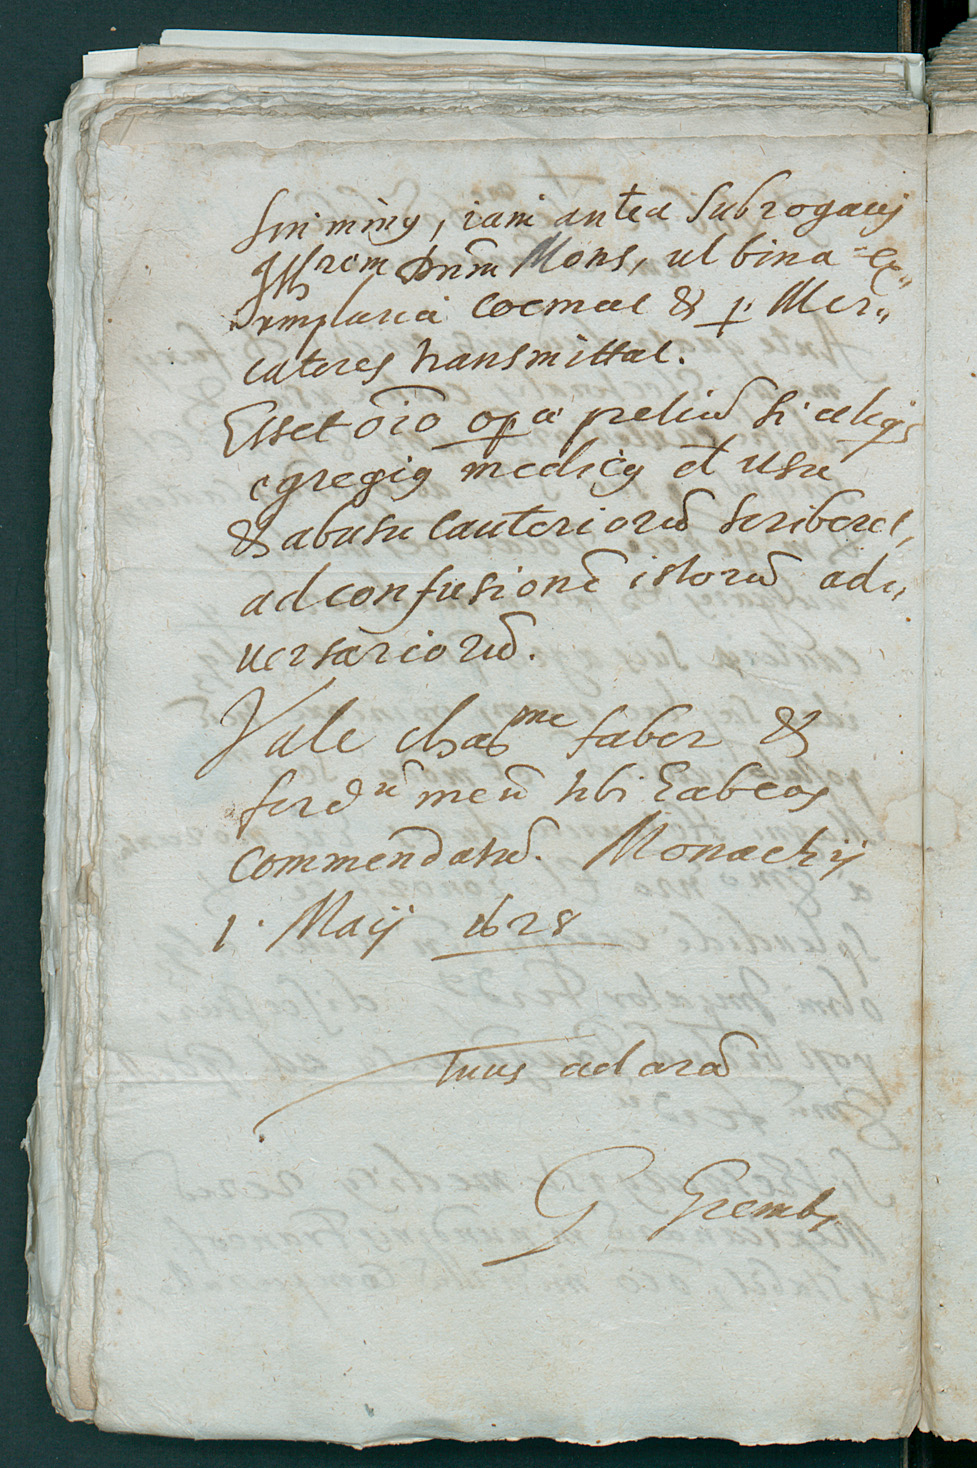 sin minus, iam antea subrogavi
Illrem Dnm Mons, ut bina ex„
emplaria coemat & p. Mer„
catores transmittat.
Esset oio opa pretiũ si aliqs
egregiq medicq et usu
& abusu cauteriorũ scriberet,
ad confusionẽ istorũ ad„
versariorũ.
Vale chaᵐᵉ faber &
ferdᵘ meũ tibi habeas
commendatũ. Monachij
1. Maij 1628
Tuus ad arã
G